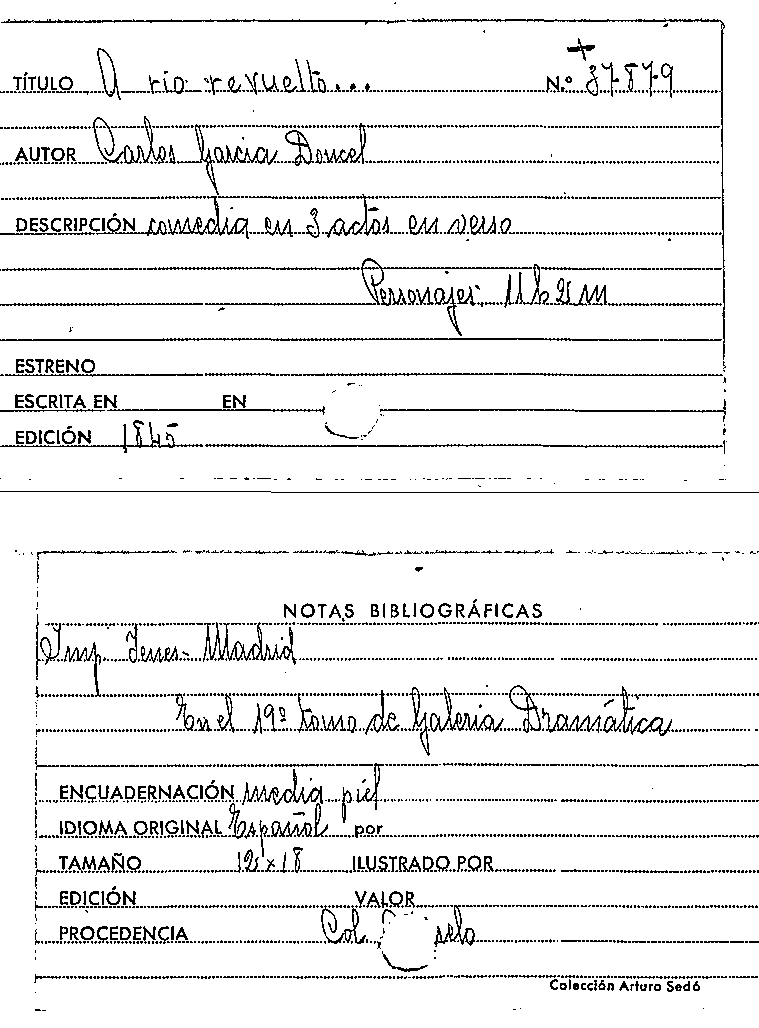 TÍTULO A rio revuelto... N.º 37879
AUTOR Carlos Garcia Doncel
DESCRIPCIÓN comedia en 3 actos en verso
Personajes: 11 h 2 m
ESTRENO
ESCRITA EN EN
EDICIÓN 1845
NOTAS BIBLIOGRÁFICAS
Imp. Yenes - Madrid
En el 19º tomo de Galeria Dramática
ENCUADERNACIÓN media piel
IDIOMA ORIGINAL Español por
TAMAÑO 12 x 18 ILUSTRADO POR
EDICIÓN VALOR
PROCEDENCIA Col.
Colección Arturo Sedó